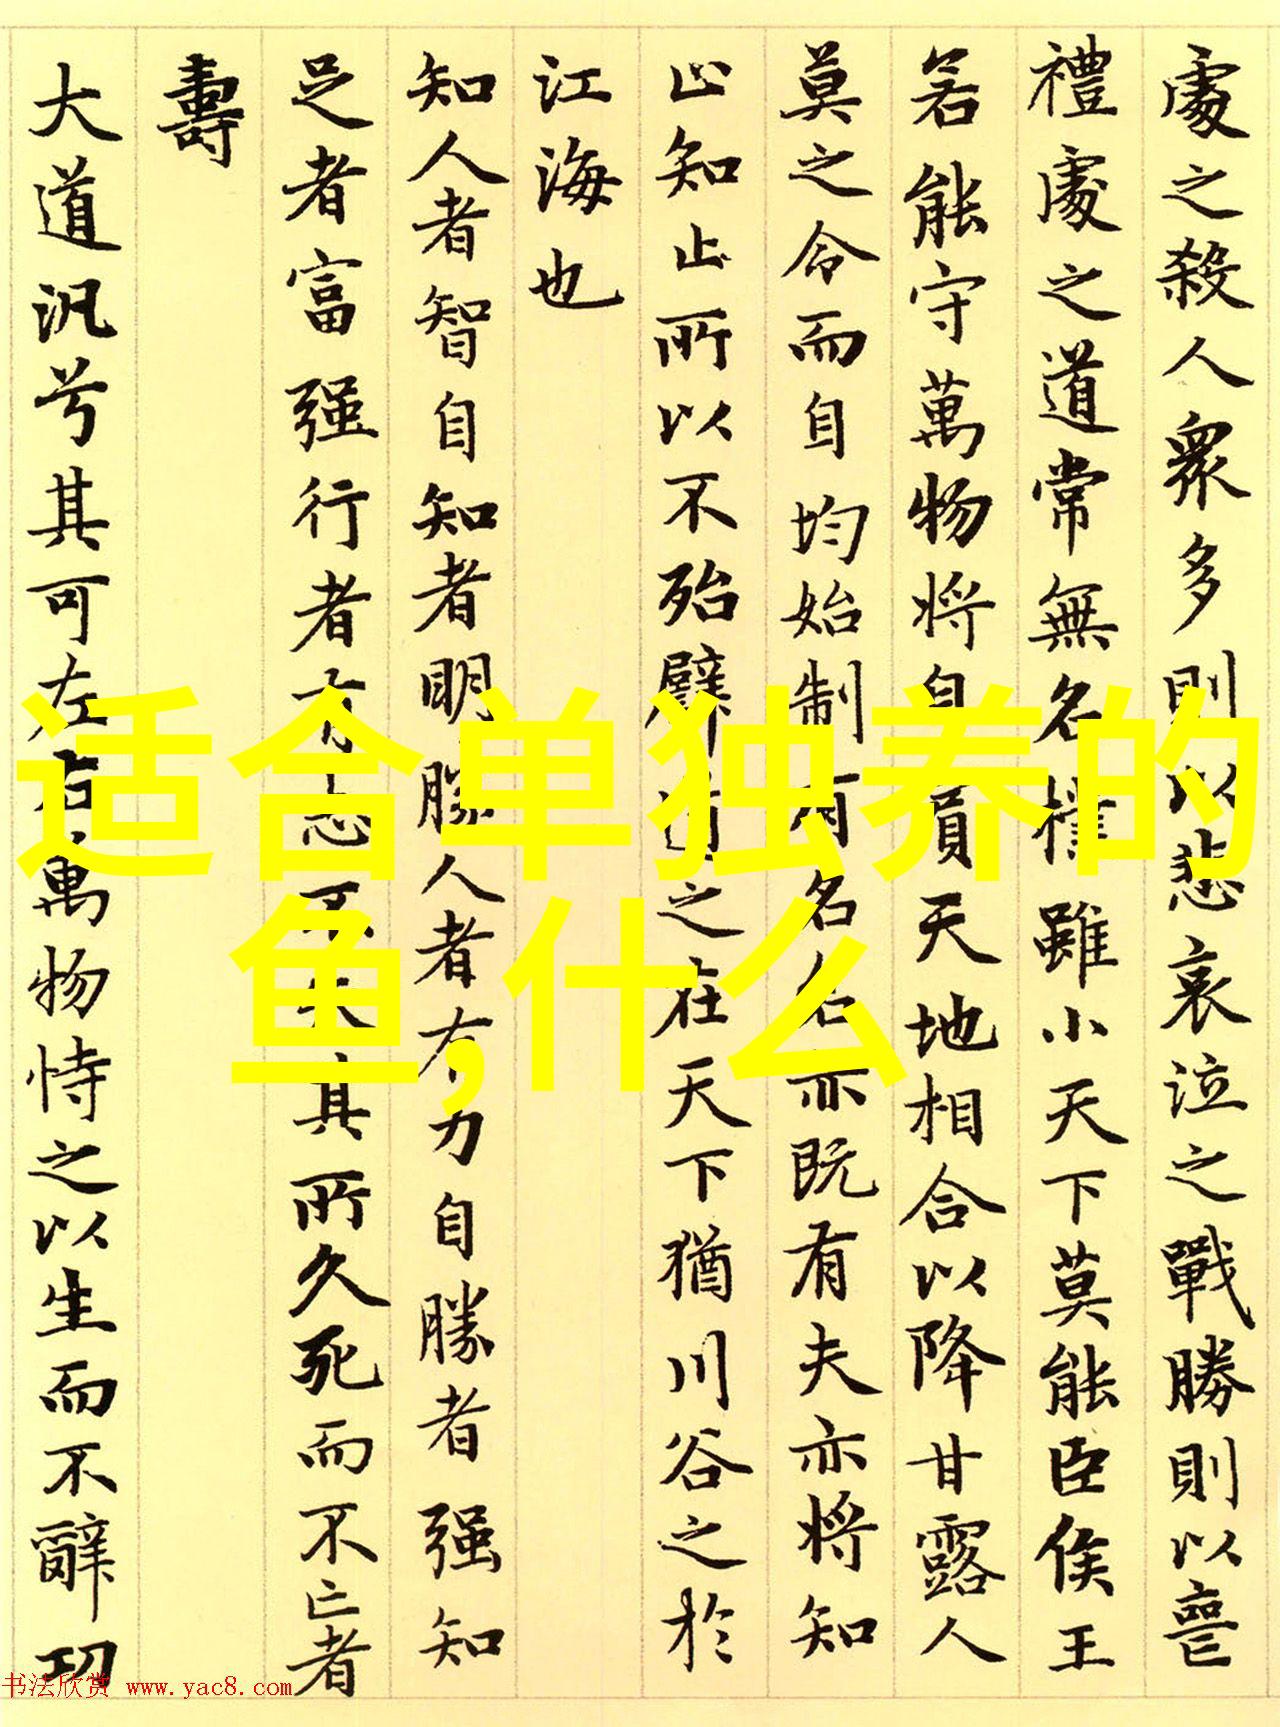 處之殺人衆多則以悲哀泣之戰勝則以喪
禮處之道常無名樸雖小天下莫能臣侯王
若能守萬物將自賓天地相合以降甘露人
莫之令而自均始制有名名亦既有夫亦將知
止知止所以不殆譬道之在天下猶川谷之於
江海也
知人者智自知者明勝人者有力自勝者强知
足者富强行者有志不失其所久死而不亡者
壽
大道汎兮其可左右萬物恃之以生而不辭功
适合单独养的
鱼,什么
书法欣赏 www.yac8.com